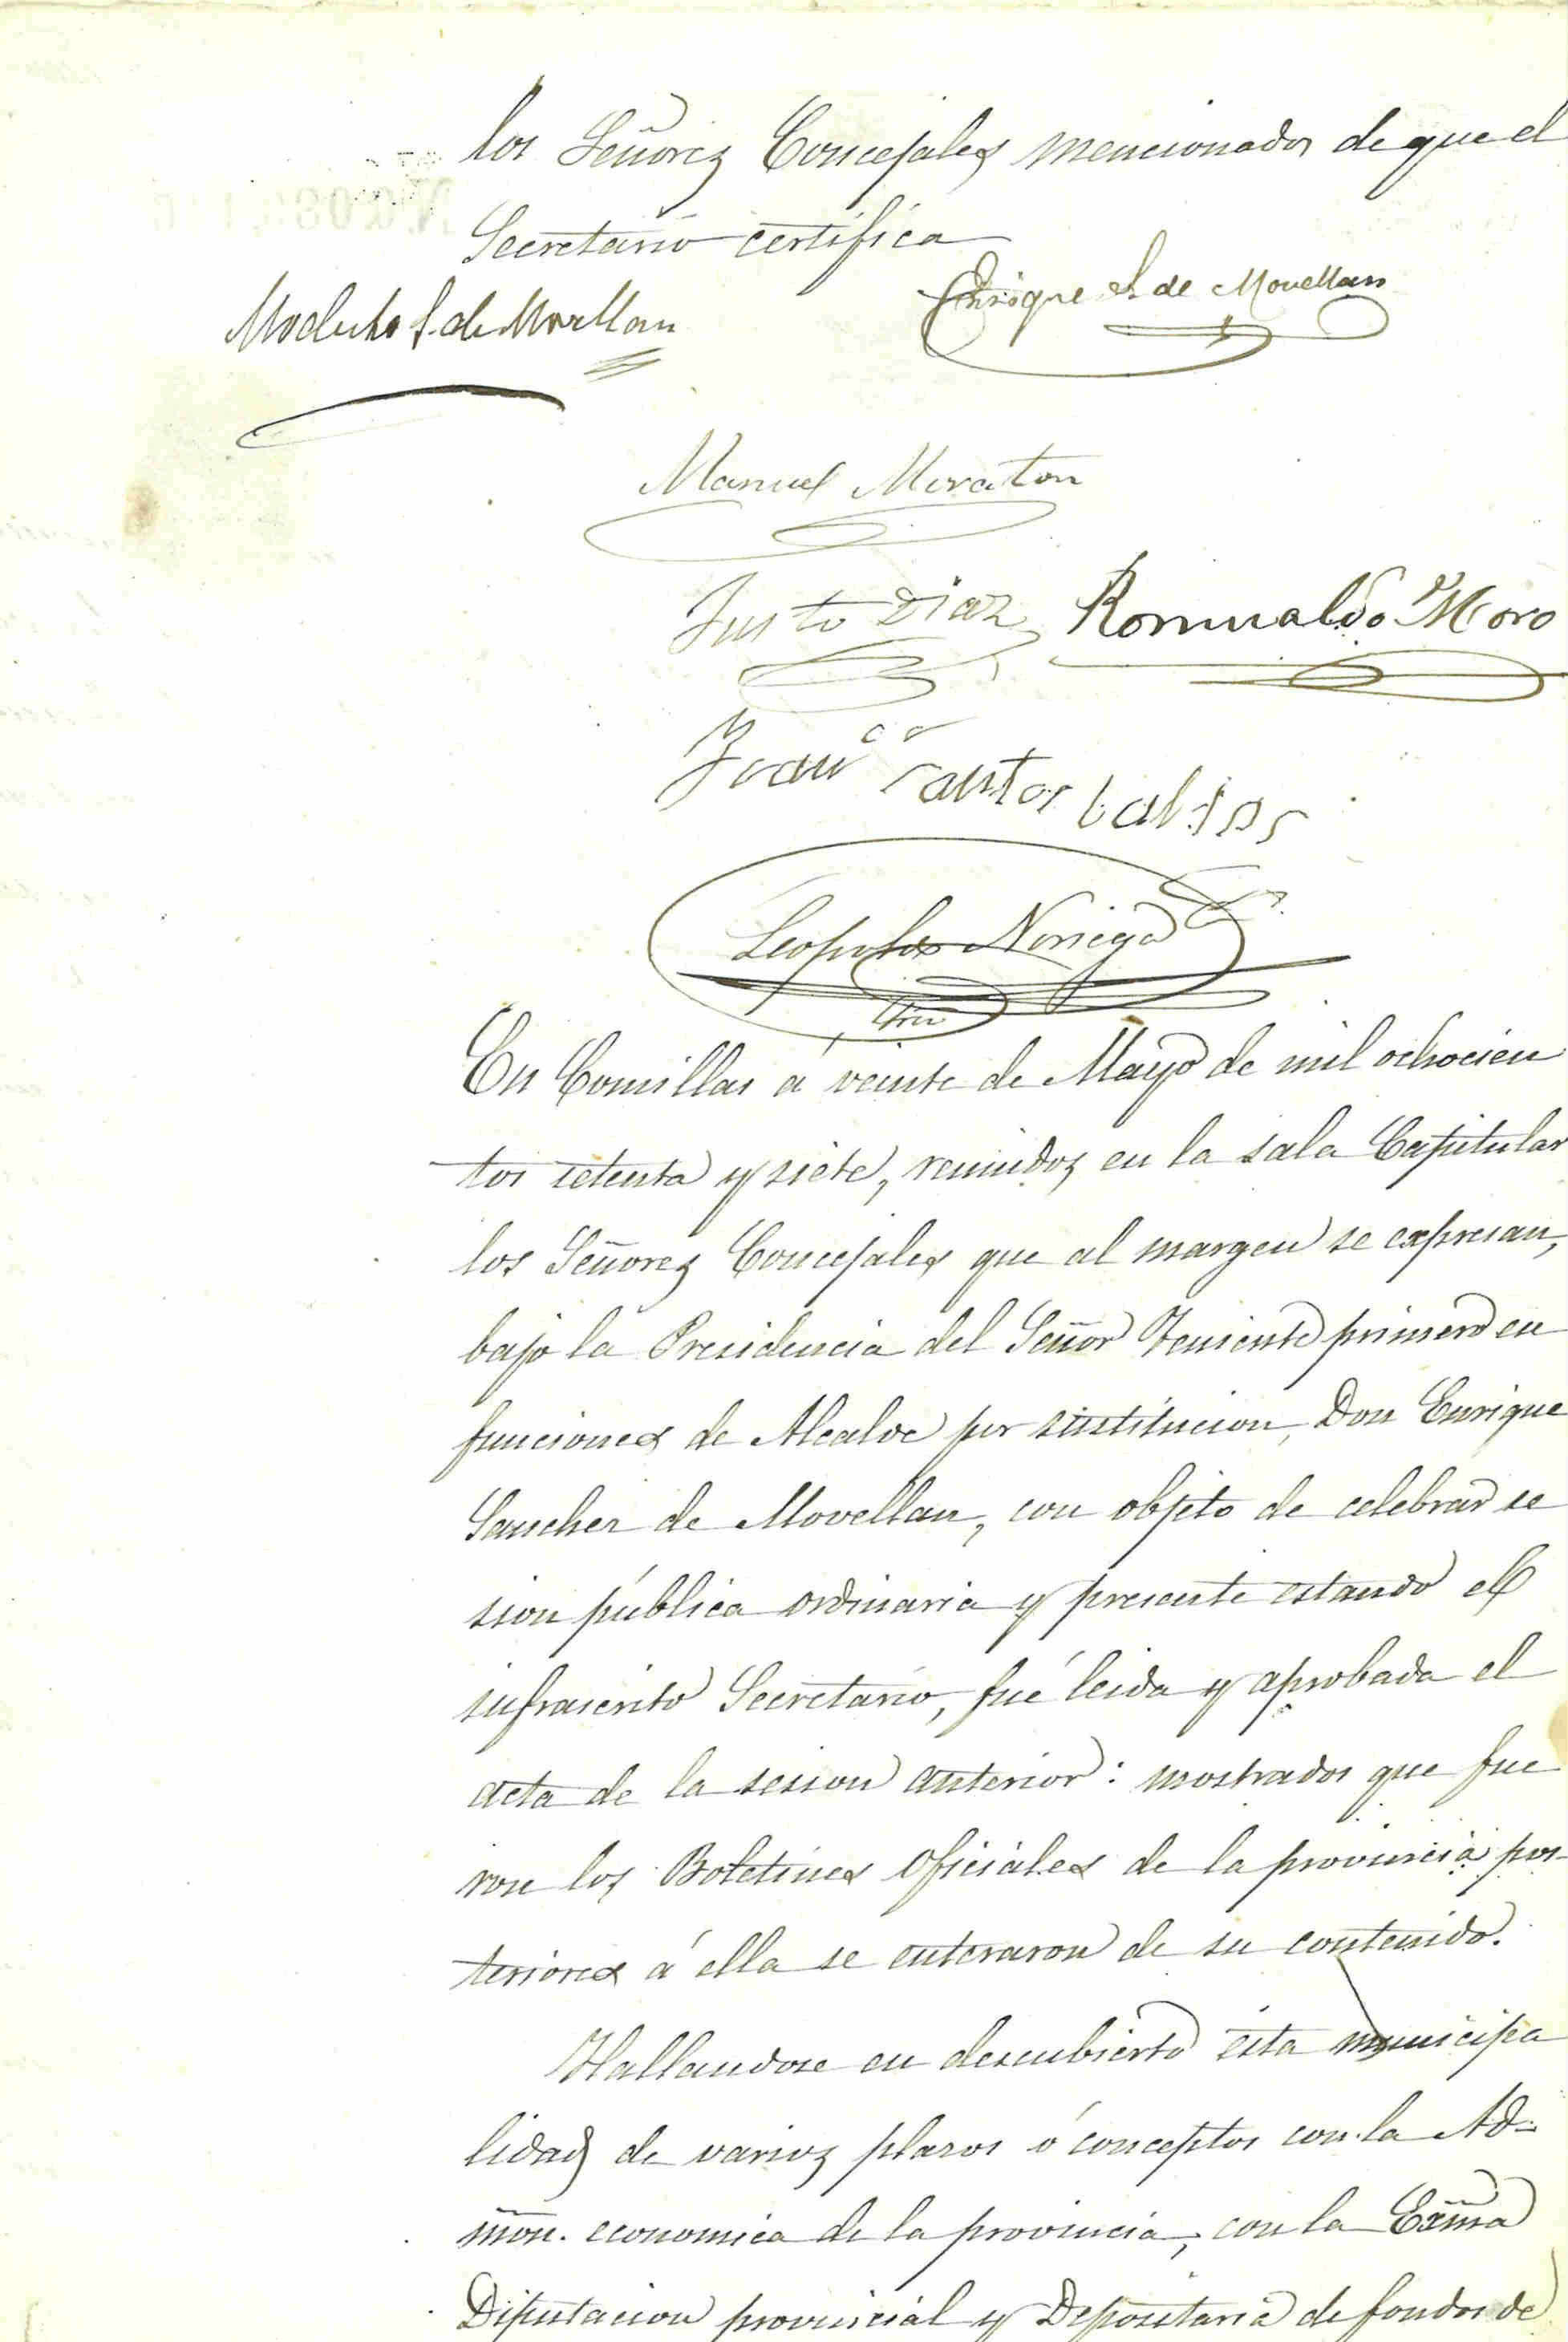 los Señores Concejales mencionados de que el
Secretario certifica
Modesto S. de Movellan
Enrique S. de Movellan
Manuel Moraton
Justo Diaz Romualdo Moro
Juan Santos
Leopoldo Noriega
Srio
En Comillas á veinte de Mayo de mil ochocien
tos setenta y siete, reunidos en la sala Capitular
los Señores Concejales que al margen se expresan,
bajo la Presidencia del Señor Teniente primero en
funciones de Alcalde por sustitucion, Don Enrique
Sanchez de Movellan, con objeto de celebrar se
sion pública ordinaria y presente estando el
infrascrito Secretario, fué leida y aprobada el
acta de la sesion anterior: mostrados que fue
ron los Boletines oficiales de la provincia pos-
teriores á ella se enteraron de su contenido.
Hallandose en descubierto esta municipa
lidad de varios plazos ó conceptos con la Ad-
mon. economica de la provincia, con la Exma
Diputacion provincial y Depositaria de fondos de